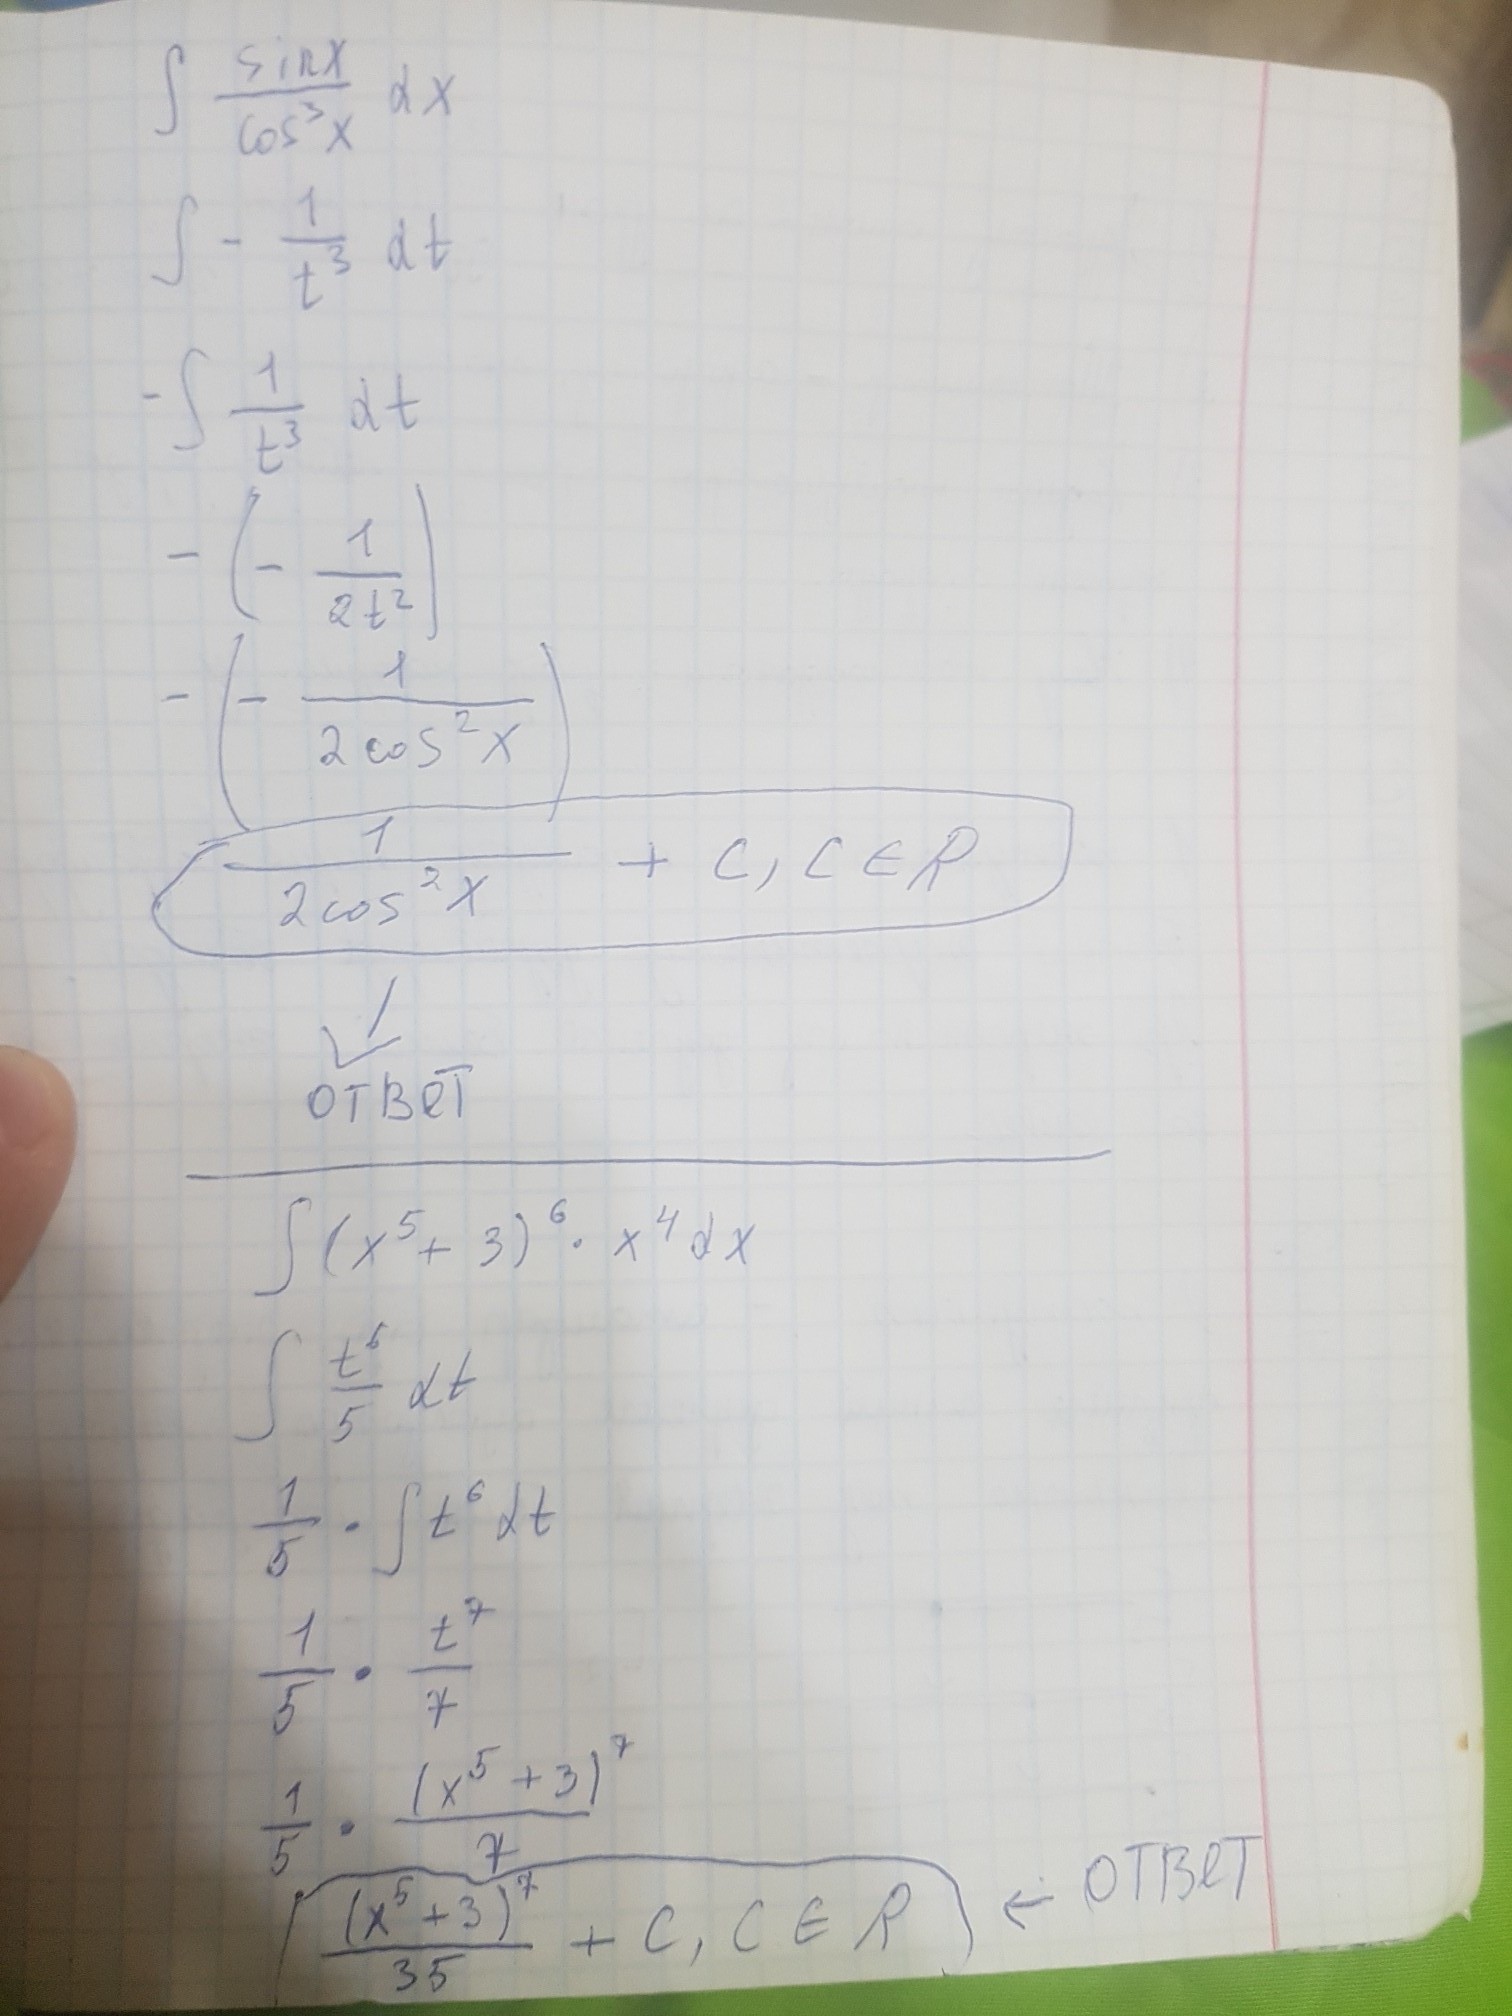 ∫ sinx/cos³x dx
∫ - 1/t³ dt
-∫ 1/t³ dt
- (- 1/2t²)
- (- 1/2cos²x)
1/2cos²x + C, C ∈ R
ОТВЕТ
∫ (x⁵ + 3)⁶ · x⁴ dx
∫ t⁶/5 dt
1/5 · ∫ t⁶ dt
1/5 · t⁷/7
1/5 · (x⁵ + 3)⁷/7
(x⁵ + 3)⁷/35 + C, C ∈ R ← ОТВЕТ